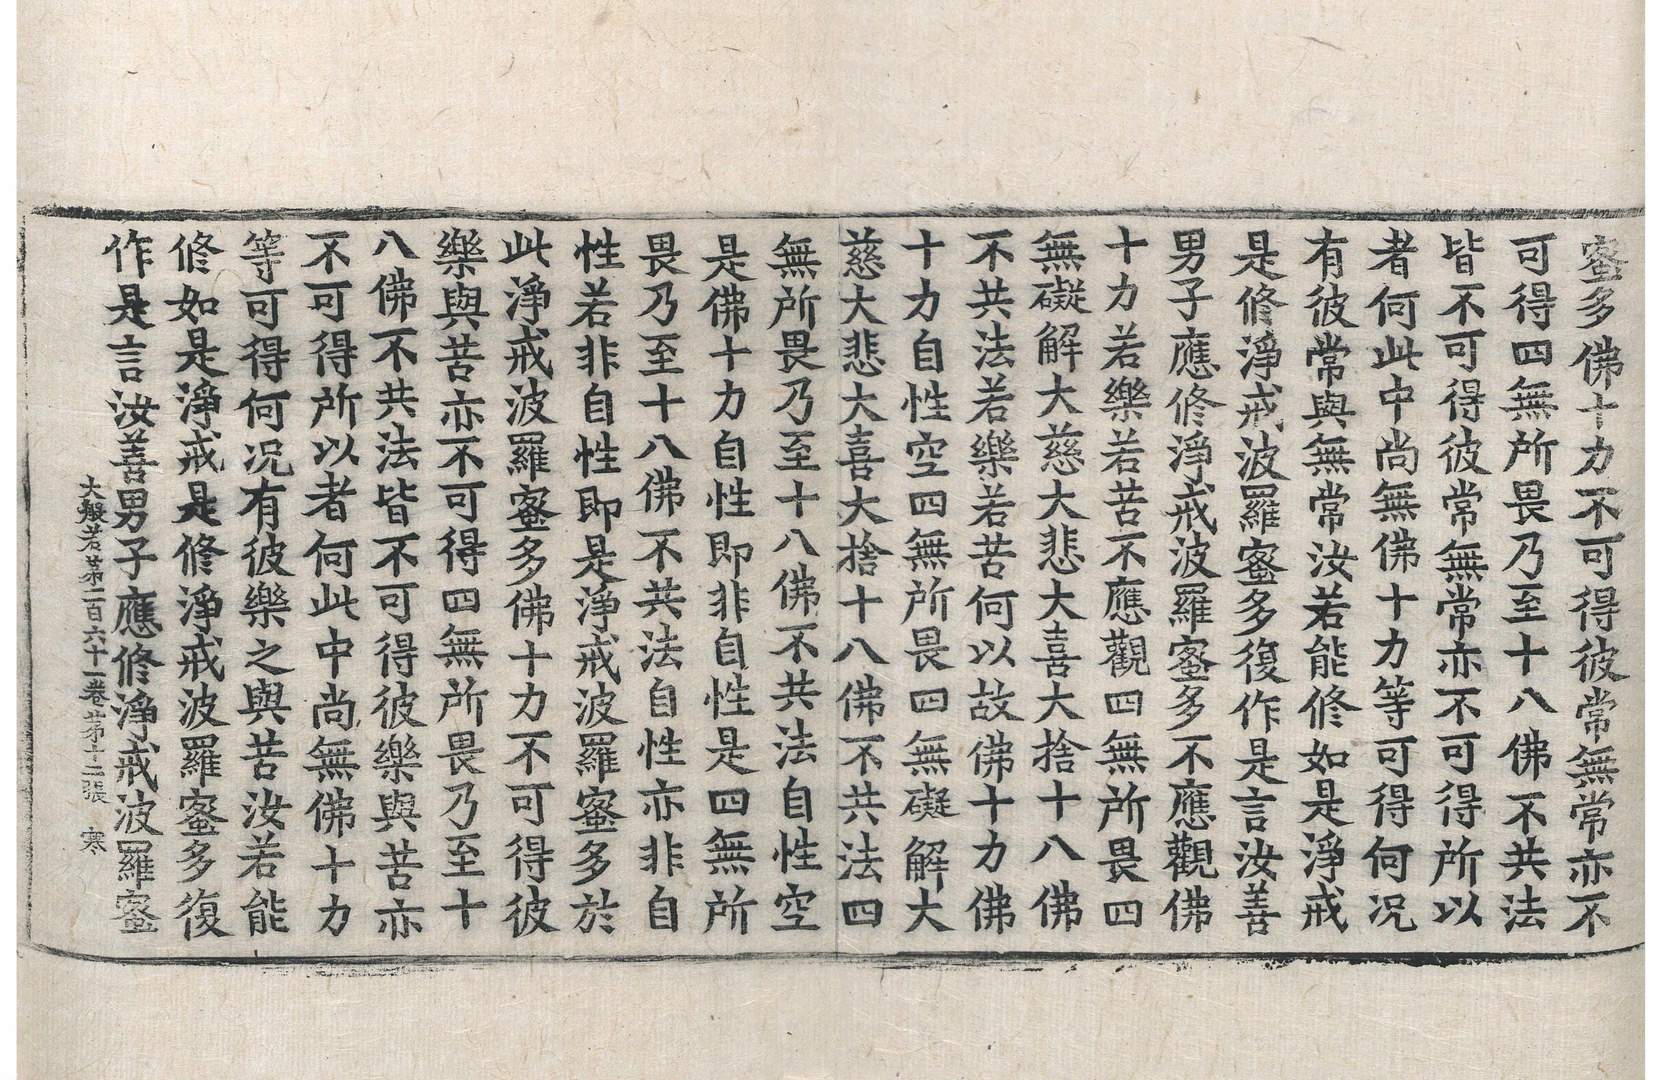 蜜多佛十力不可得彼常無常亦不
可得四無所畏乃至十八佛不共法
皆不可得彼常無常亦不可得所以
者何此中尚無佛十力等可得何況
有彼常與無常汝若能修如是淨戒
是修淨戒波羅蜜多復作是言汝善
男子應修淨戒波羅蜜多不應觀佛
十力若樂若苦不應觀四無所畏四
無礙解大慈大悲大喜大捨十八佛
不共法若樂若苦何以故佛十力佛
十力自性空四無所畏四無礙解大
慈大悲大喜大捨十八佛不共法四
無所畏乃至十八佛不共法自性空
是佛十力自性即非自性是四無所
畏乃至十八佛不共法自性亦非自
性若非自性即是淨戒波羅蜜多於
此淨戒波羅蜜多佛十力不可得彼
樂與苦亦不可得四無所畏乃至十
八佛不共法皆不可得彼樂與苦亦
不可得所以者何此中尚無佛十力
等可得何況有彼樂之與苦汝若能
修如是淨戒是修淨戒波羅蜜多復
作是言汝善男子應修淨戒波羅蜜
大般若第二百六十一卷第十二張 寒